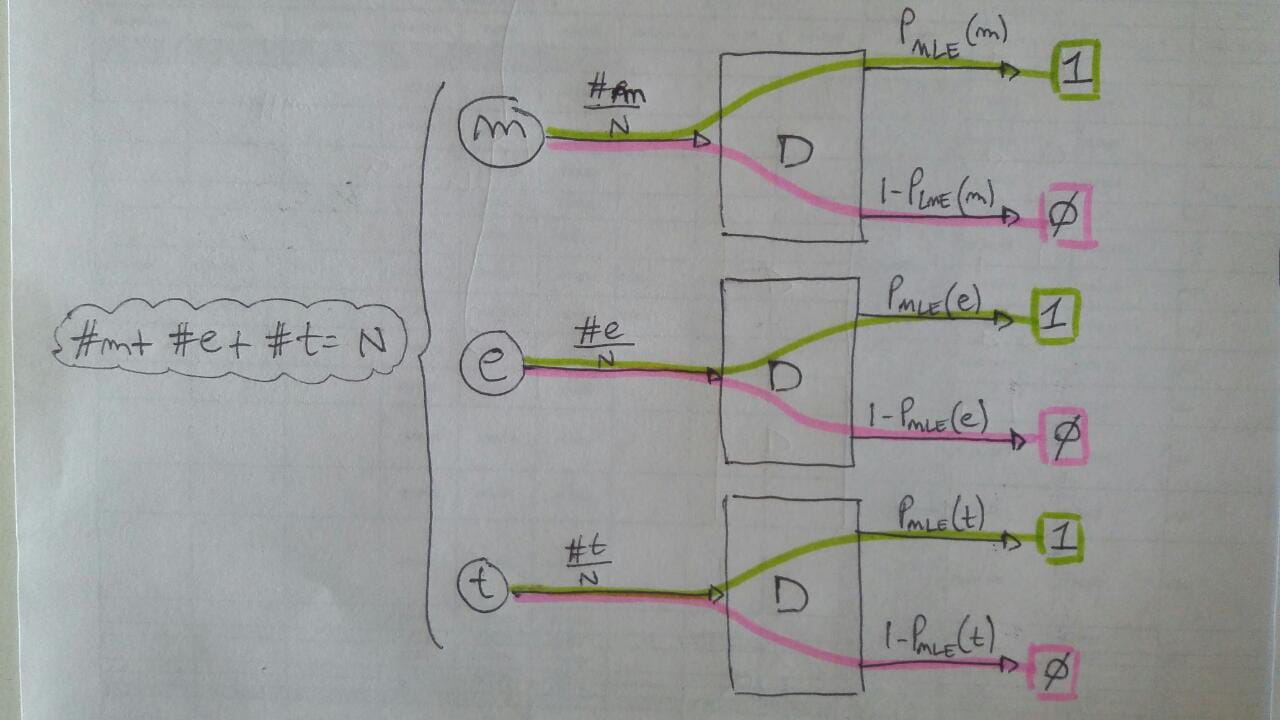 #m+ #e+ #t= N
m
#m
N
D
PMLE(m)
1
1-PLME(m)
Ø
e
#e
N
D
PMLE(e)
1
1-PMLE(e)
Ø
t
#t
N
D
PMLE(t)
1
1-PMLE(t)
Ø